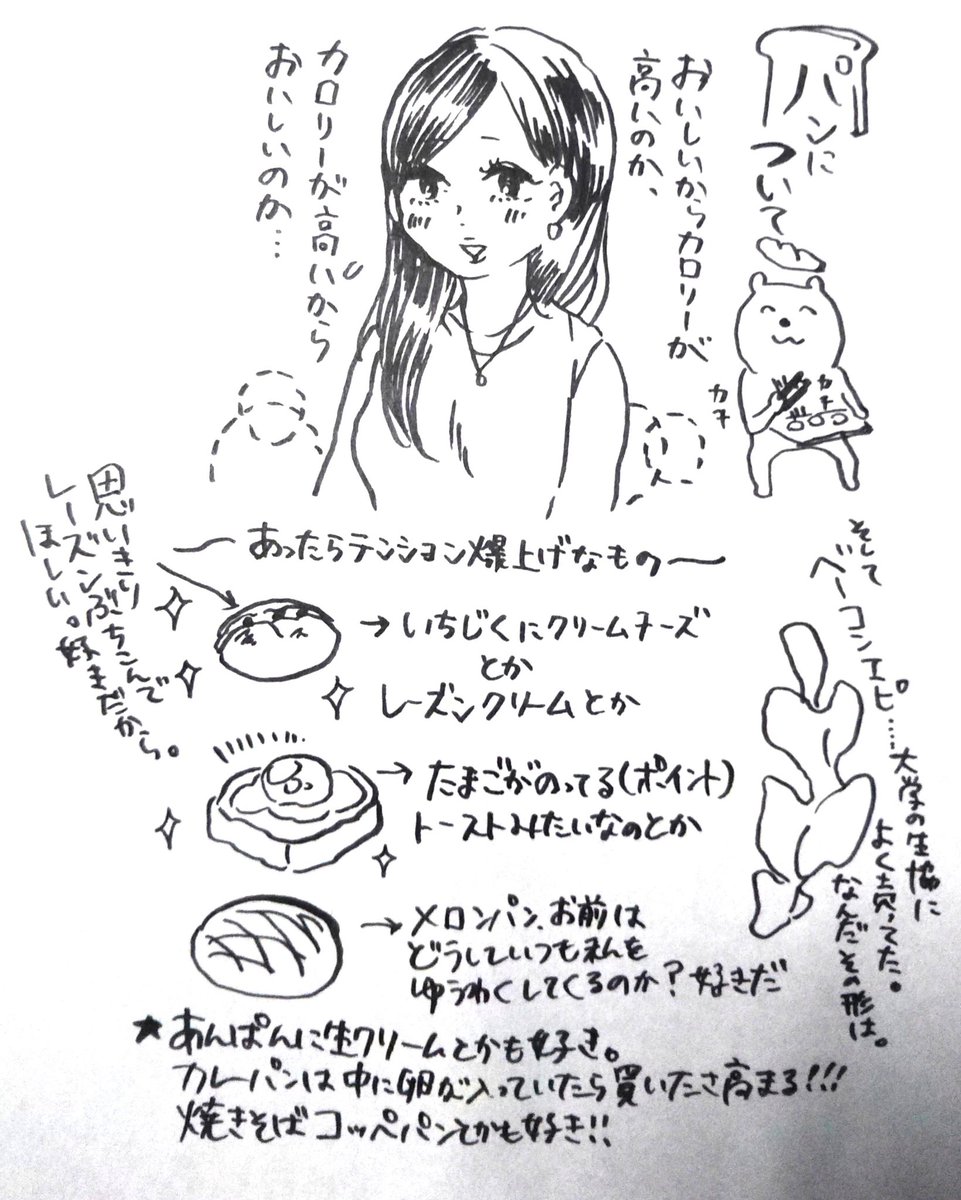 パンに
ついて
おいしいからカロリーが
高いのか、
カロリーが高いから
おいしいのか…
カチ
カチ
あったらテンション爆上げなもの
思いきり
レーズンぶちこんで
ほしい。好きだから。
→いちじくにクリームチーズ
とか
レーズンクリームとか
→たまごがのってる(ポイント)
トーストみたいなのとか
→メロンパン、お前は
どうしていつも私を
ゆうわくしてくるのか?好きだ
そして
ベーコンエピ……大学の生協に
よく売ってた。
なんだその形は。
★あんぱんに生クリームとかも好き。
カレーパンは中に卵が入っていたら買いたさ高まる!!!
焼きそばコッペパンとかも好き!!